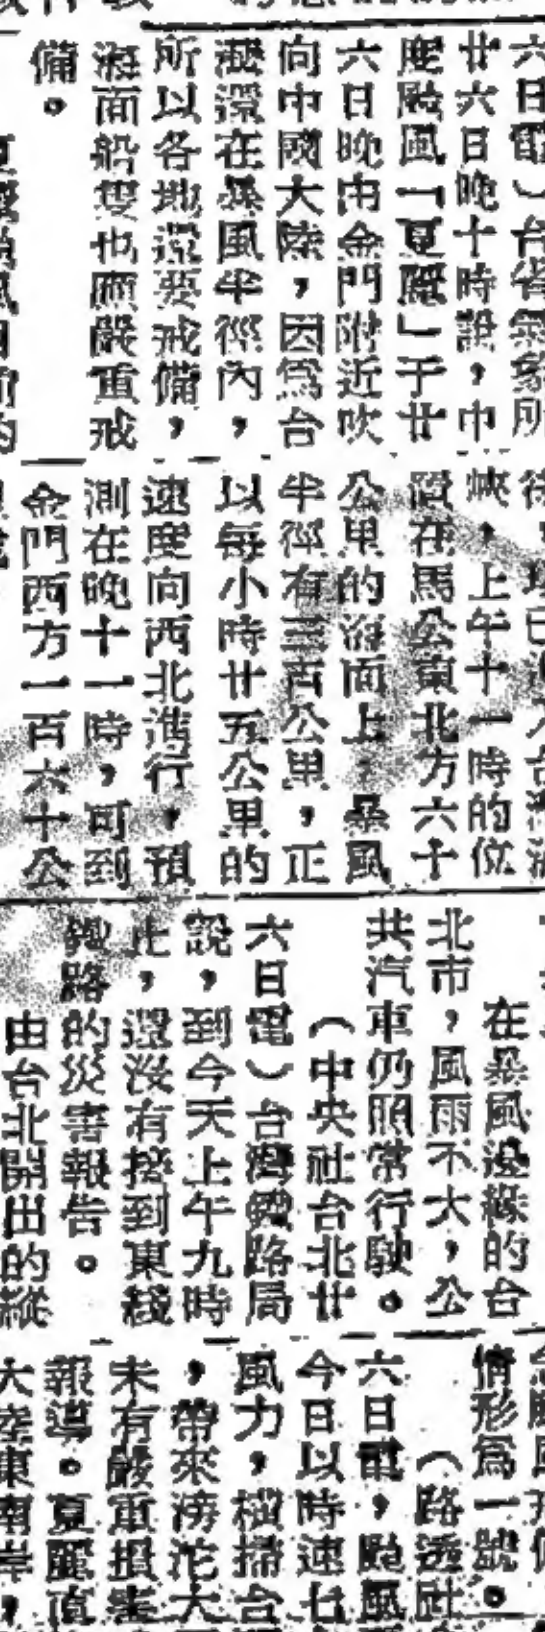 六日電）台省氣象所
廿六日晚十時說，中
度颱風「夏麗」于廿
六日晚由金門附近吹
向中國大陸，因爲台
灣還在暴風半徑內，
所以各地還要戒備，
海面船隻也應嚴重戒
備。
峽，上午十一時的位
置在馬公東北方六十
公里的海面上，暴風
半徑有三百公里，正
以每小時廿五公里的
速度向西北進行，預
測在晚十一時，可到
金門西方一百六十公
在暴風邊緣的台
北市，風雨不大，公
共汽車仍照常行駛。
（中央社台北廿
六日電）台灣鐵路局
說，到今天上午九時
止，還沒有接到東綫
鐵路的災害報告。
由台北開出的縱
情形爲一號。
（路透社
六日電，颱風
今日以時速七
風力，橫掃台
，帶來滂沱大
未有嚴重損害
報導。夏麗直
大陸東南岸，